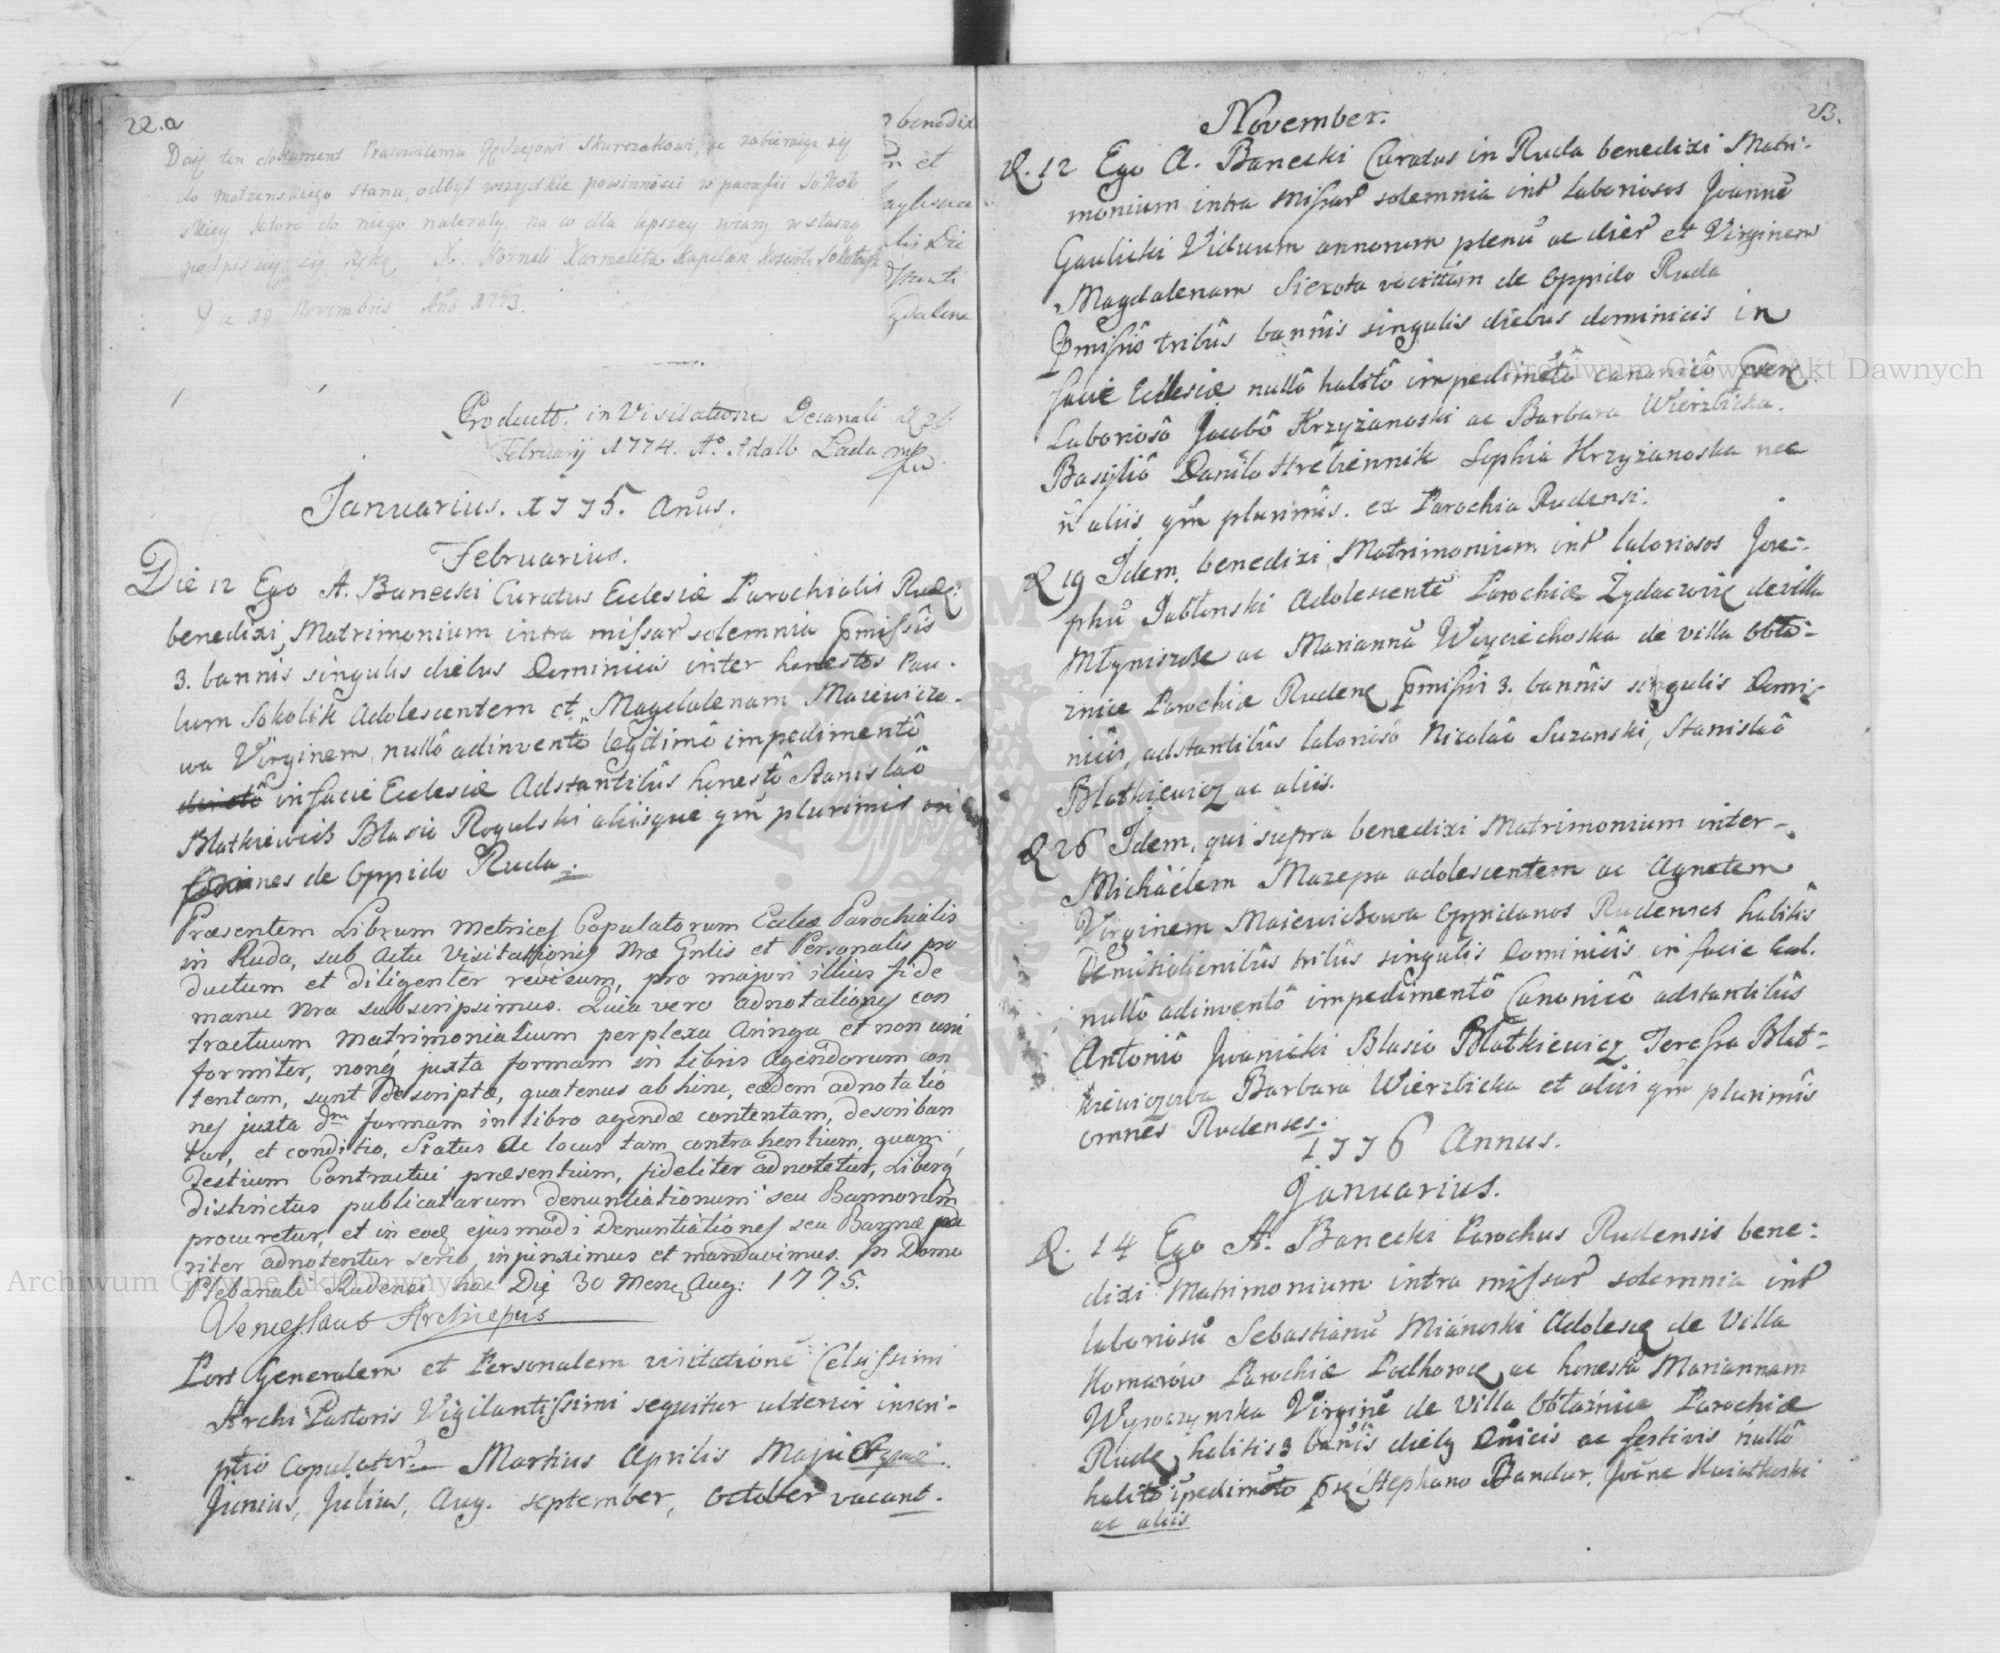 22.a
Daię ten dokument Pracowitemu Jędrzejowi Skurczakowi, że zabieraiąc się
do małzenskiego stanu, odbył wszystkie powinności w parafii Sokoł
skiey ktore do niego nalezały, na co dla lepszey wiary własną
podpisuię się ręką X. Korneli Karmelita Kapelan Koscioła
Die 19 Novembris Año 1773.
benedixi
et
Die
gdalene
Product. in Visitatione Decanali
Februarij 1774. A. Adalb Lada mp
Januarius. 1775. Anus.
Februarius.
Die 12 Ego A. Banecki Curatus Ecclesiæ Parochialis Rudę:
benedixi Matrimonium intra missar solemnia pmissis
3. bannis singulis diebus Dominicis inter honestos Pau-
lum Sokolik Adolescentem et Magdalenam Maiewiczo-
wa Virginem, nullô adinventô legitimô impedimentô
in facie Ecclesiæ Adstantibûs honestô Stanislaô
Blatkiewicz Blasio Rogulski aliisque qm plurimis
de Oppido Ruda.
Præsentem Librum Metrices Copulatorum Eccliæ Parochialis
in Ruda, sub actu Visitationis Nræ Gnlis et Personalis pro
ductum et diligenter revisum, pro majori illius fide
manu Nra subscripsimus. Quia vero adnotationes con
tractuum matrimonialium perplexa Aringa et non uni
formiter, nonq juxta formam in libris Agendorum con
tentam, sunt descriptæ, quatenus ab hinc, eædem adnotatio
nes juxta dm formam in libro agendæ contentam, describan
tur, et conditio, Status ac locus tam contrahentium, quam
Testium Contractui præsentium, fideliter adnotetur, Liberq
distinctus publicatarum denuntiationum seu Bannorum
procuretur, et in eoq ejusmodi Denuntiationes seu Bannæ pa
riter adnotentur serio injunximus et mandavimus. In Domo
Plebanali Rudensi hac Die 30 Mens Aug: 1775.
Venceslaus Archiepus
Post Generalem et Personalem visitatione Celsissimi
Archi Pastoris Vigilantissimi sequitur ulterior inscri-
ptio Copulator. Martius Aprilis Majus
Junius, Julius, Aug. September, October vacant.
23.
November.
D. 12 Ego A. Banecki Curatus in Ruda benedixi Matri-
monium intra Missar solemnia int laboriosos Joannê
Gawlicki Viduum annorum plenû ac dier et Virginem
Magdalenam Sierota vocitatam de Oppido Ruda
pmissis tribûs bannis singulis diebus dominicis in
facie Ecclesiæ nullô habitô impedimêtô canonicô
Laboriosô Jacobô Krzyżanoski ac Barbara Wierzbicka.
Basyliô Daniło Hrebiennik Sophia Krzyżanoska nec
ñ aliis qm plurimis. ex Parochia Rudensi.
D 19 Idem benedixi Matrimonium int laboriosos Jose-
phû Jabłonski Adolescente Parochiæ Żydaczovię de villa
Młyniszcze ac Mariannû Woyciechoska de villa Obła-
znica Parochiæ Rudenę pmissis 3. bannis singulis Domi-
nicis, adstantibûs laboriosô Nicolaô Suzanski, Stanislaô
Blatkiewicz ac aliis.
D 26 Idem, qui supra benedixi Matrimonium inter
Michaëlem Mazepa adolescentem ac Agnetem
Virginem Maiewiczowa Oppidanos Rudenses habitis
Denutiationibûs tribûs singulis Dominicis in facie Eccl.
nullô adinventô impedimentô Canonicô adstantibûs
Antoniô Jwanicki Blasio Blatkiewicz Teressa Blat-
kiewiczowa Barbara Wierzbicka et aliis qm plurimis
omnes Rudenses.
1776 Annus.
Januarius.
D. 14 Ego A. Banecki Parochus Rudensis bene-
dixi Matrimonium intra missar solemnia int
laboriosû Sebastianû Mianoski Adolesc de Villa
Komarów Parochiæ Podhorcę ac honestâ Mariannam
Wysoczynska Virginê de Villa Obłaźnica Parochiæ
Rudę habitis 3 banis dieby Dnicis ac festivis nullô
habitô ipedimêto Stephano Bandur, Joane Kwiatkoski
ac aliis
Archiwum Główne Akt Dawnych
Archiwum Główne Akt Dawnych